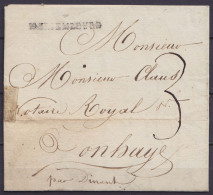 Monsieur
Monsieur Claus
Notaire Royal
3
Onhaye
par Dinant